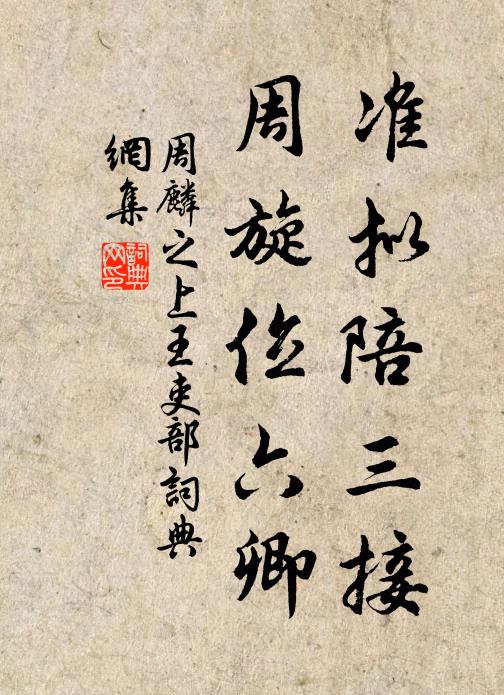 准拟陪三接
周旋位六卿
周麟之上王吏部詞典
網集
詞典网印